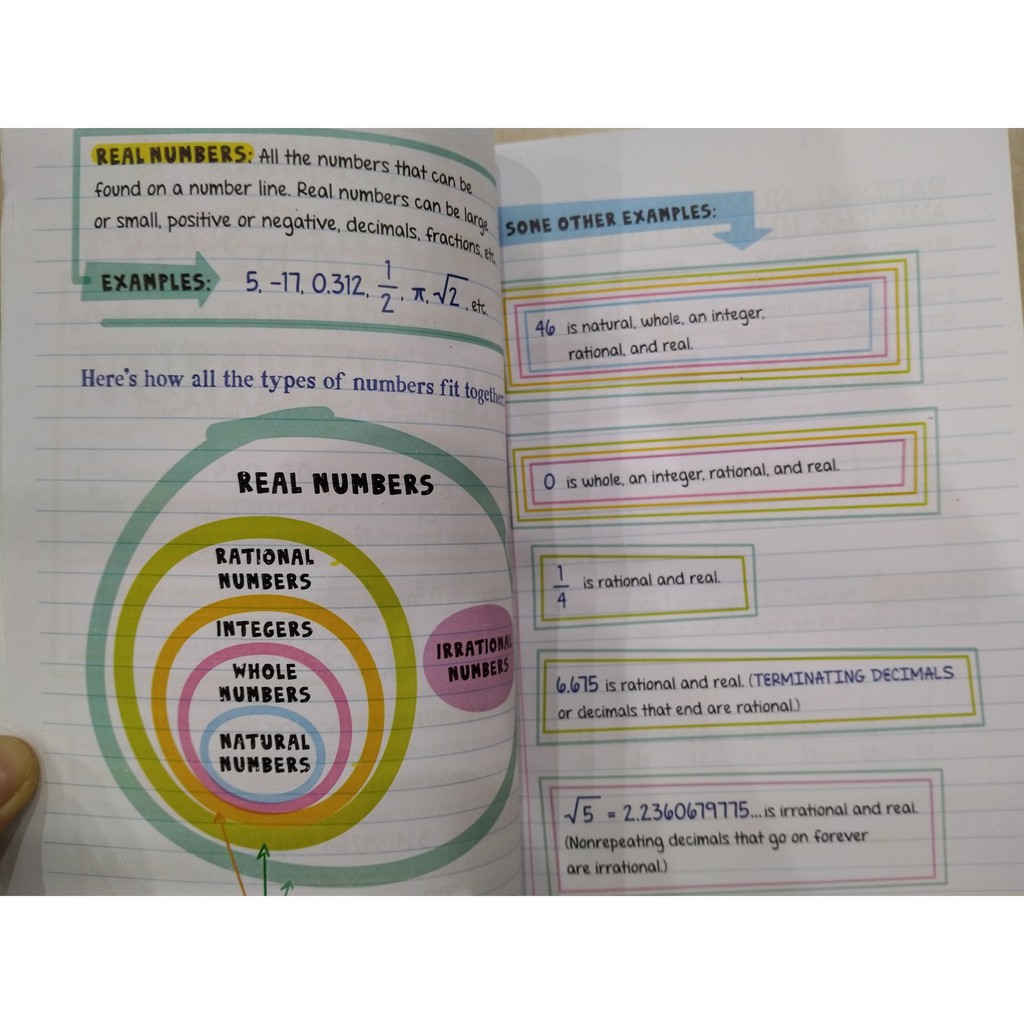 REAL NUMBERS: All the numbers that can be
found on a number line. Real numbers can be large
or small, positive or negative, decimals, fractions, etc.
EXAMPLES: 5, -17, 0.312, 1/2, π, √2, etc.
Here's how all the types of numbers fit together
REAL NUMBERS
RATIONAL
NUMBERS
INTEGERS
WHOLE
NUMBERS
NATURAL
NUMBERS
IRRATIONAL
NUMBERS
SOME OTHER EXAMPLES:
46 is natural, whole, an integer,
rational, and real.
0 is whole, an integer, rational, and real.
1/4 is rational and real.
6.675 is rational and real. (TERMINATING DECIMALS
or decimals that end are rational.)
√5 = 2.2360679775... is irrational and real.
(Nonrepeating decimals that go on forever
are irrational.)